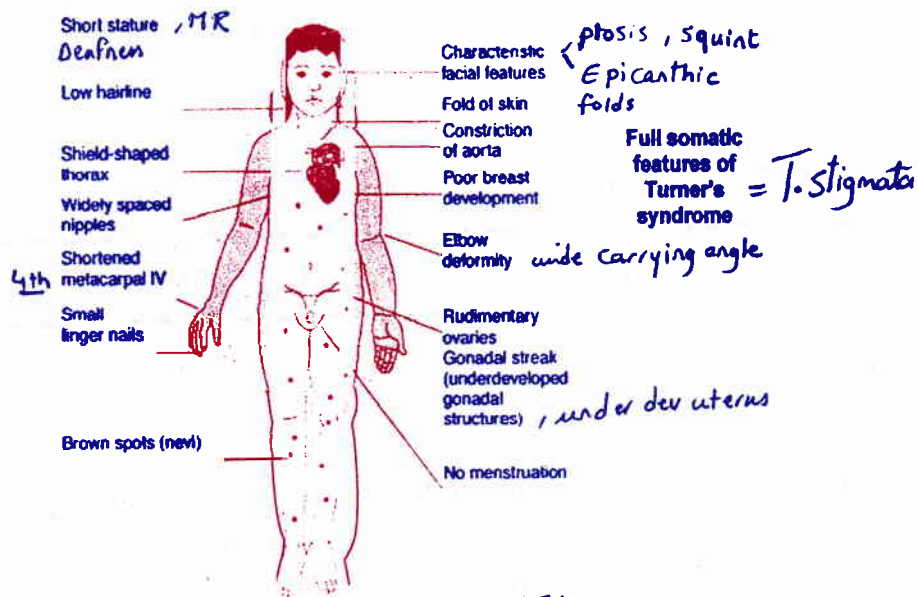 Short stature , MR
Deafness
Low hairline
Shield-shaped
thorax
Widely spaced
nipples
Shortened
4th metacarpal IV
Small
finger nails
Brown spots (nevi)
Characteristic
facial features
ptosis , squint
Epicanthic
folds
Fold of skin
Constriction
of aorta
Poor breast
development
Elbow
deformity wide carrying angle
Rudimentary
ovaries
Gonadal streak
(underdeveloped
gonadal
structures) , under dev uterus
No menstruation
Full somatic
features of
Turner's
syndrome = T. stigmata